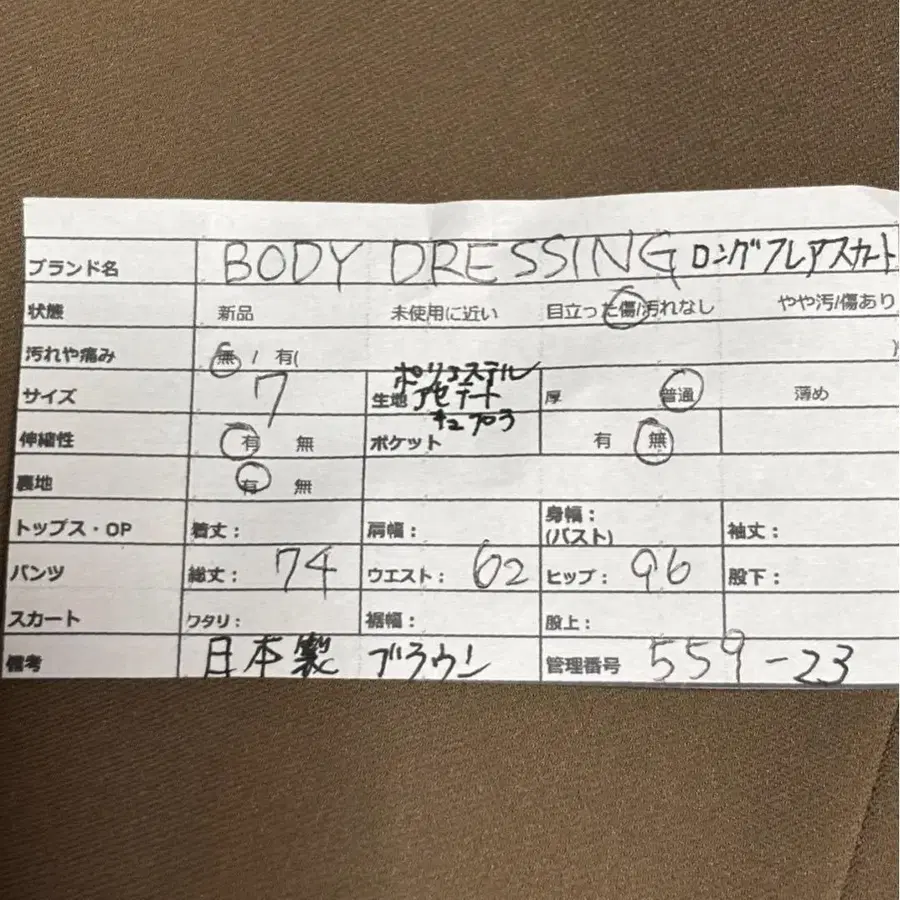 ブランド名 BODY DRESSING ロングフレアスカート
状態 新品 未使用に近い 目立った傷/汚れなし やや汚/傷あり
汚れや痛み 無 / 有( )
サイズ 7 生地 ポリエステル アセテート キュプラ 厚 普通 薄め
伸縮性 有 無 ポケット 有 無
裏地 有 無
トップス・OP 着丈: 肩幅: 身幅: (バスト) 袖丈:
パンツ 総丈: 74 ウエスト: 62 ヒップ: 96 股下:
スカート ワタリ: 裾幅: 股上:
備考 日本製 ブラウン 管理番号 559-23